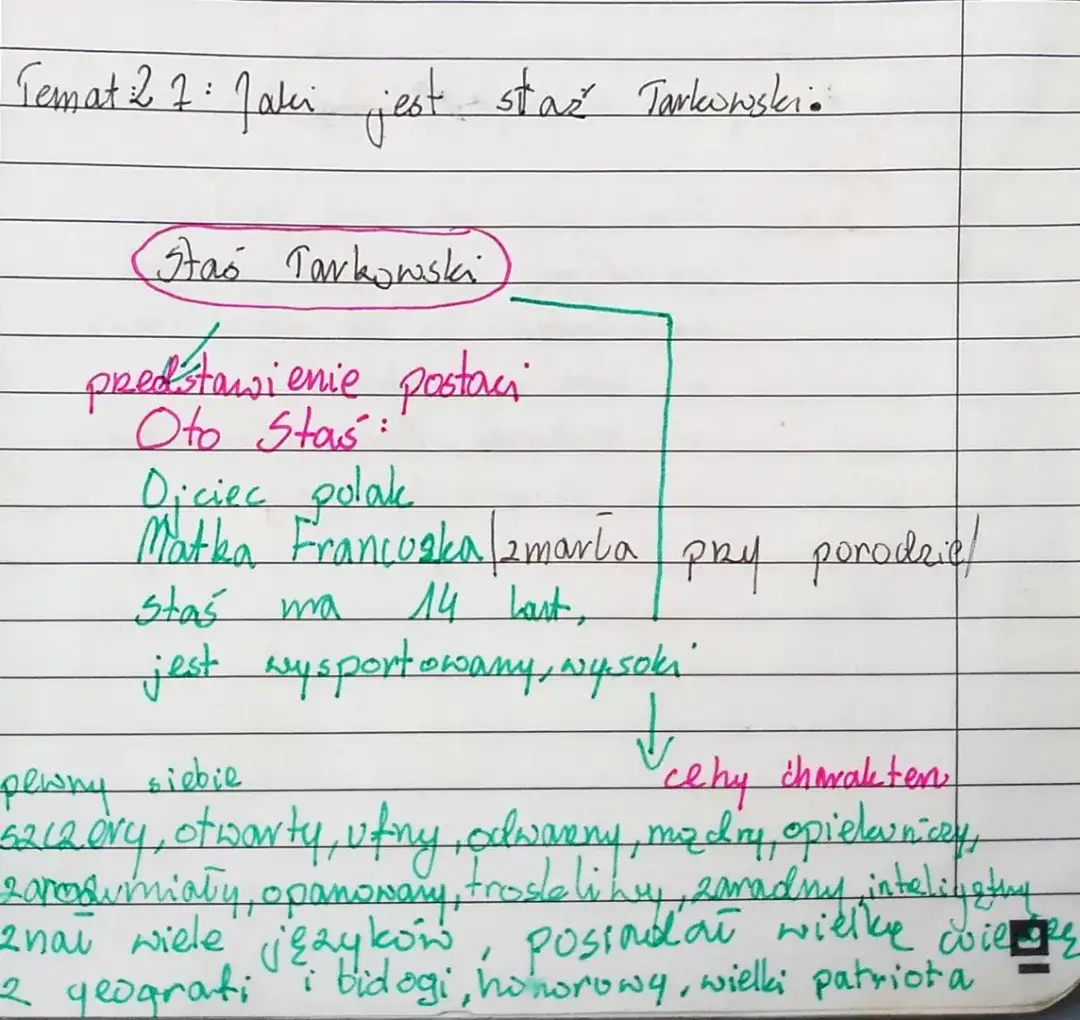 Temat 27: Jaki jest staś Tarkowski.
Staś Tarkowski
przedstawienie postaci
Oto Staś:
Ojciec polak
Matka Francuska /zmarła przy porodzie/
Staś ma 14 lat,
jest wysportowany, wysoki
cehy charakteru
pewny siebie
szczery, otwarty, ufny, odważny, mądry, opiekuńczy,
zarozumiały, opanowany, troskliwy, zaradny, inteligętny
znał wiele języków, posiadał wielkę wiedzę
z geografi i biologi, honorowy, wielki patriota